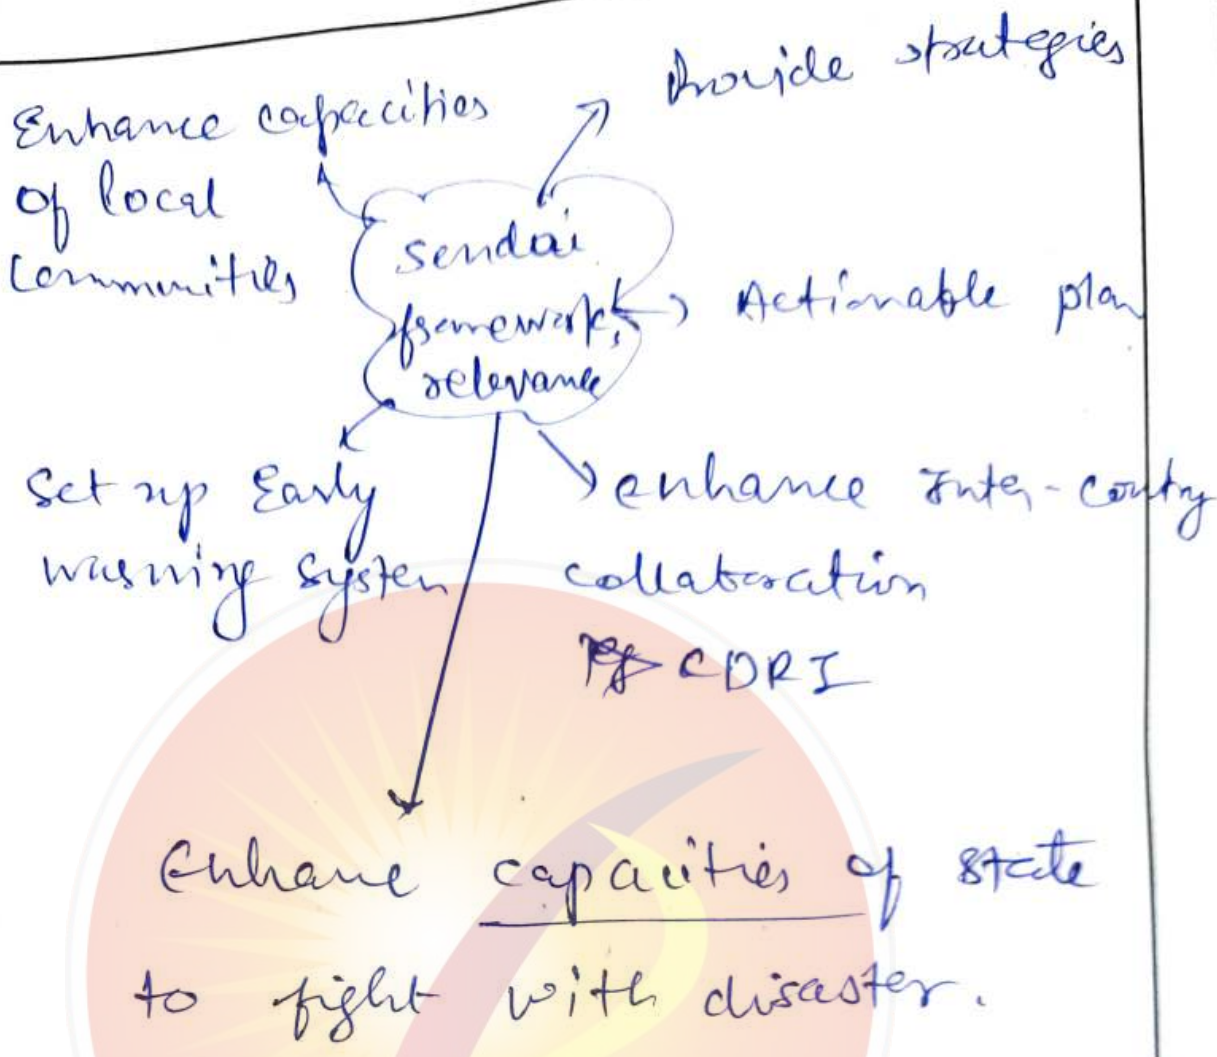 Provide strategies
Enhance capacities
of local
Communities
Sendai
framework,
relevance
Actionable plan
Set up Early
warning system
enhance Inter-contry
collaboration
CDRI
Enhance capacities of state
to fight with disaster.